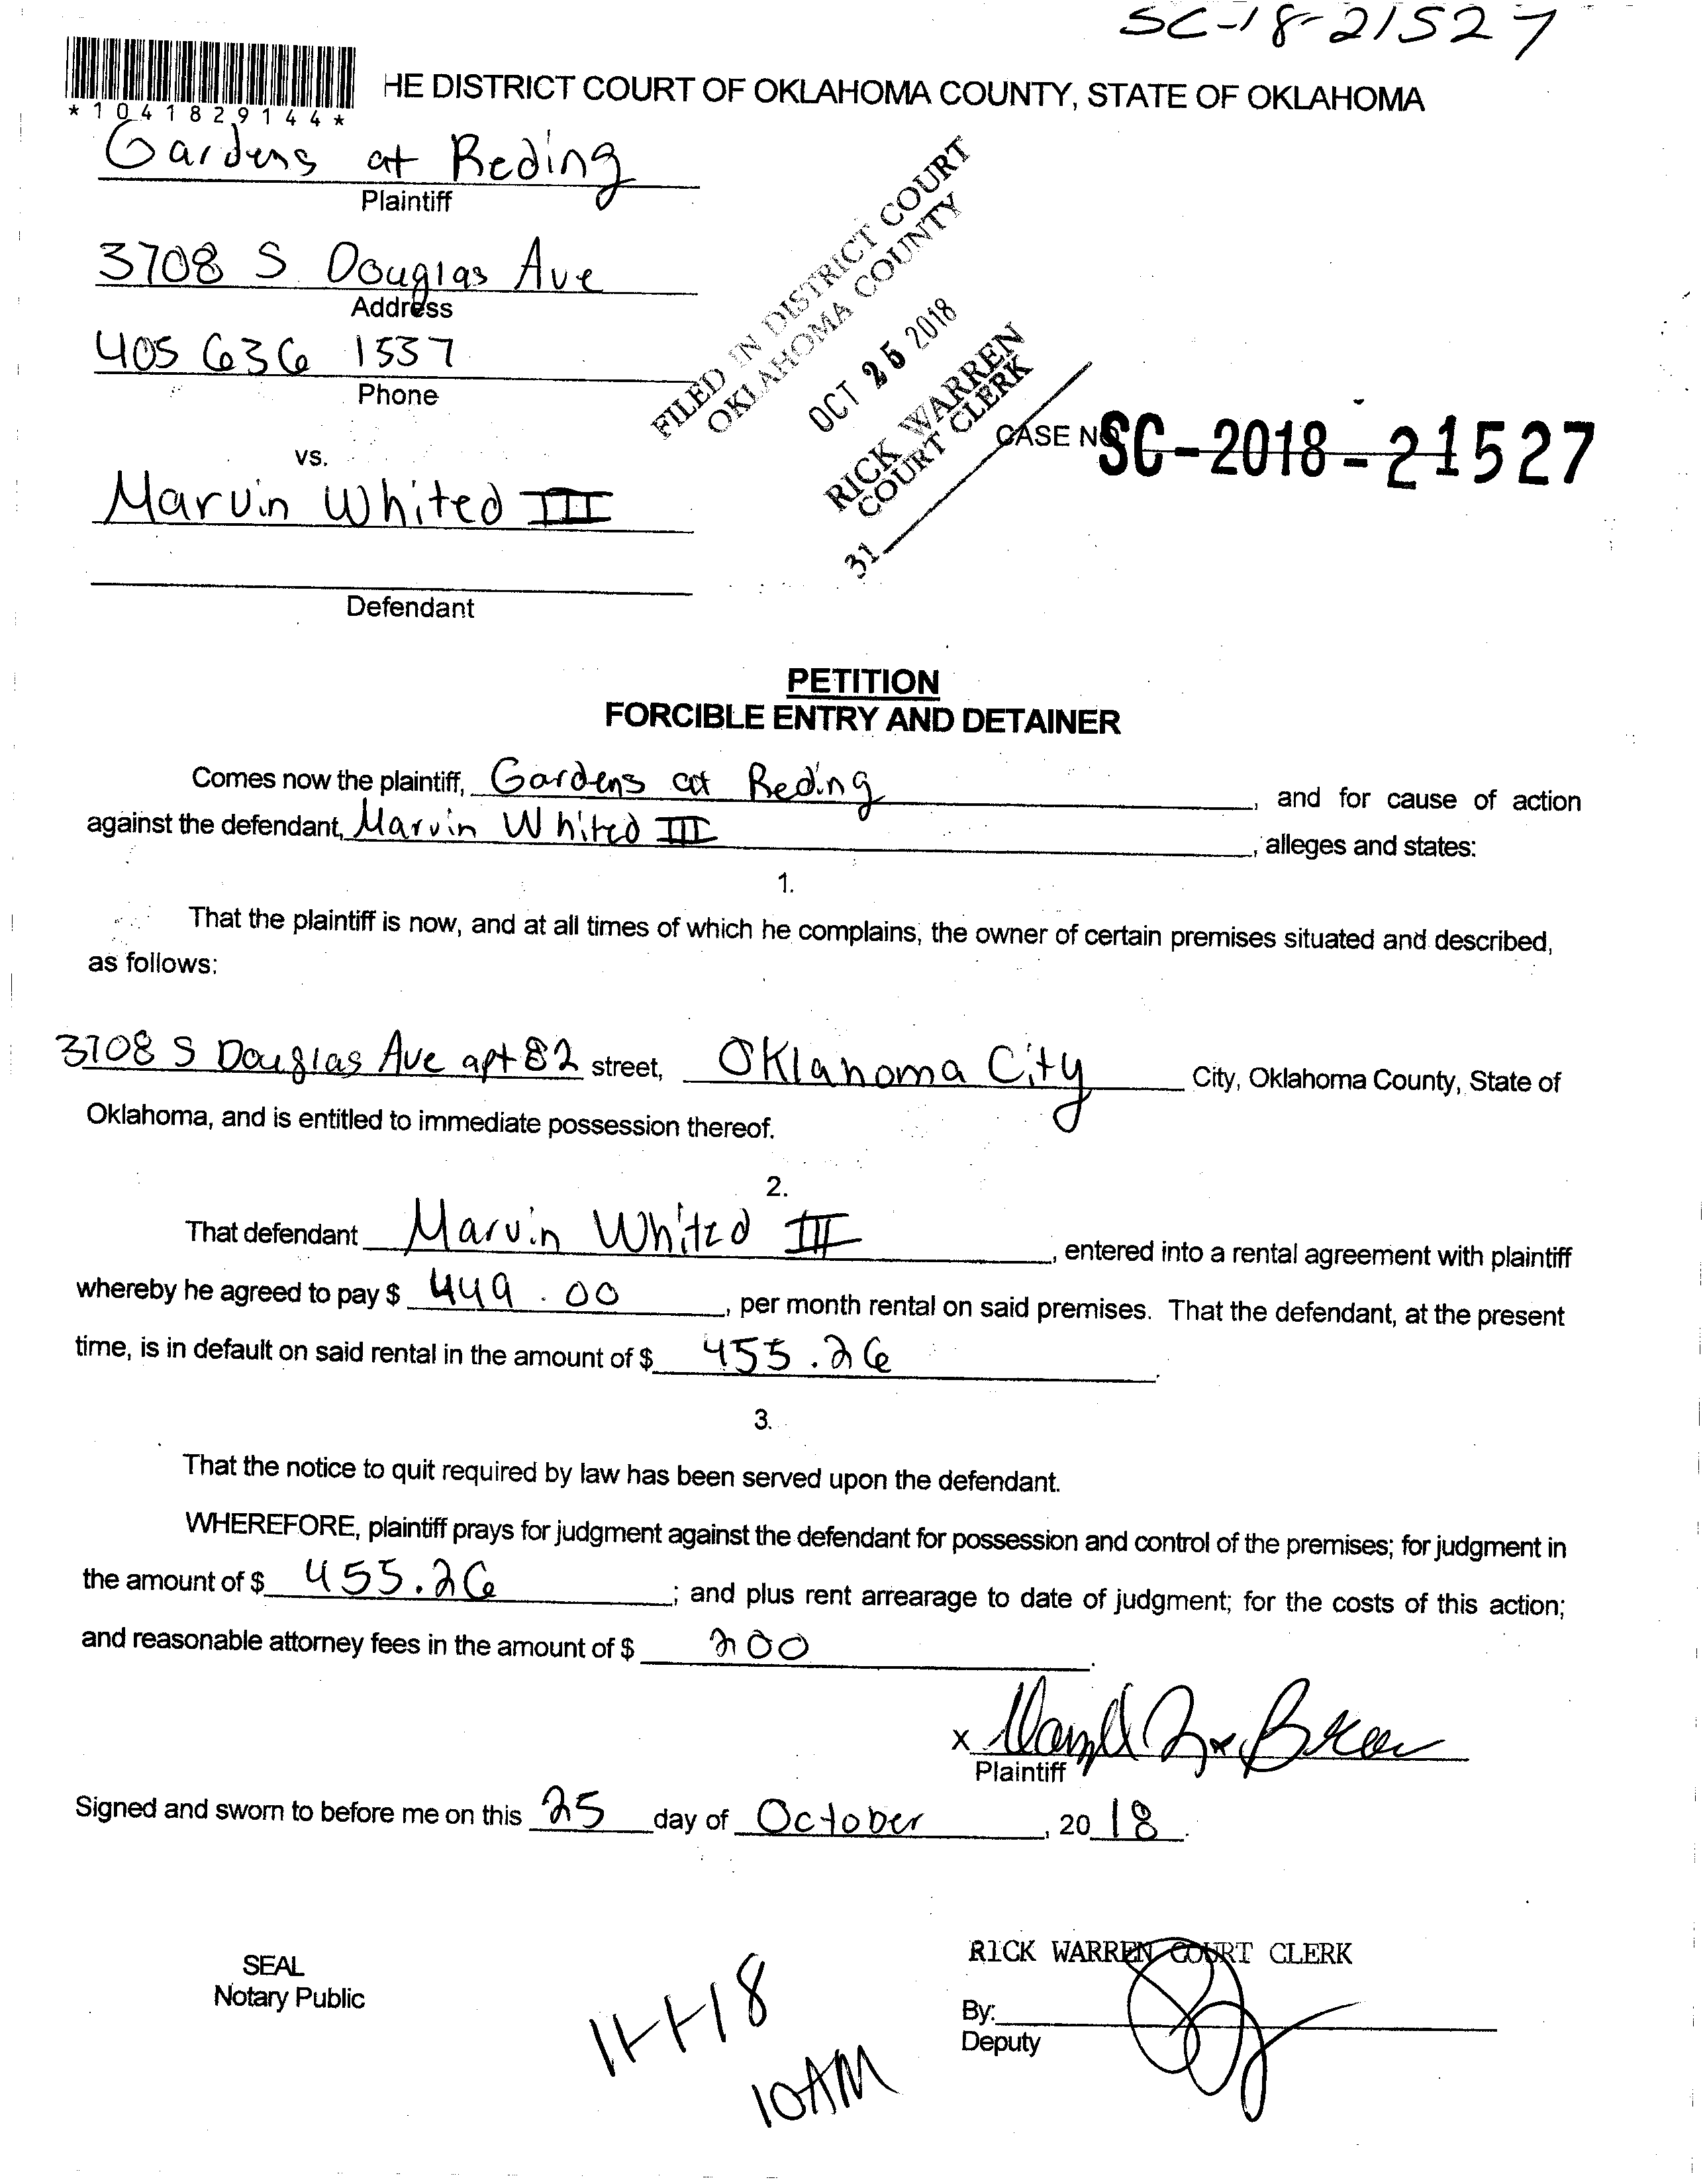 SC-18-21527
*1041829144*
HE DISTRICT COURT OF OKLAHOMA COUNTY, STATE OF OKLAHOMA
Gardens at Reding
Plaintiff
3708 S Douglas Ave
Address
405 636 1537
Phone
FILED IN DISTRICT COURT
OKLAHOMA COUNTY
OCT 25 2018
RICK WARREN
COURT CLERK
31
CASE NO SC-2018-21527
vs.
Marvin Whited III
Defendant
PETITION
FORCIBLE ENTRY AND DETAINER
Comes now the plaintiff, Gardens at Reding, and for cause of action
against the defendant, Marvin Whited III, alleges and states:
1.
That the plaintiff is now, and at all times of which he complains, the owner of certain premises situated and described,
as follows:
3708 S Douglas Ave apt 82 street, Oklahoma City City, Oklahoma County, State of
Oklahoma, and is entitled to immediate possession thereof.
2.
That defendant Marvin Whited III, entered into a rental agreement with plaintiff
whereby he agreed to pay $ 449.00, per month rental on said premises. That the defendant, at the present
time, is in default on said rental in the amount of $ 455.26.
3.
That the notice to quit required by law has been served upon the defendant.
WHEREFORE, plaintiff prays for judgment against the defendant for possession and control of the premises; for judgment in
the amount of $ 455.26; and plus rent arrearage to date of judgment; for the costs of this action;
and reasonable attorney fees in the amount of $ 200.
x
Plaintiff
Signed and sworn to before me on this 25 day of October, 2018.
SEAL
Notary Public
11-1-18
10AM
RICK WARREN COURT CLERK
By:
Deputy